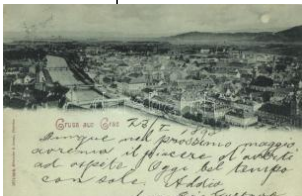 Gruss aur Graz
23/I 1898
Dunque nel prossimo maggio
avremo il piacere d'averti
ad ospite. Oggi bel tempo
con sole. Addio